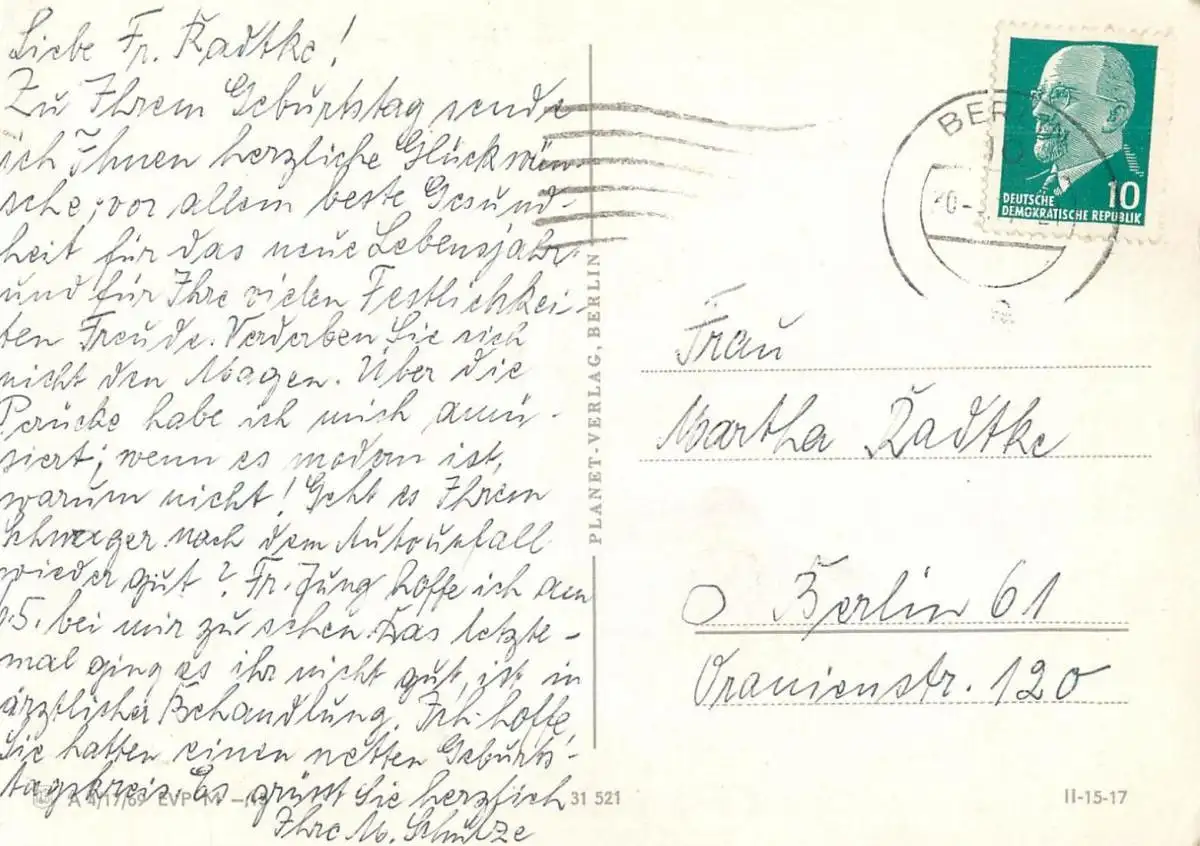 Liebe Fr. Radtke!
Zu Ihrem Geburtstag sende
ich Ihnen herzliche Glückwün-
sche, vor allem beste Gesund-
heit für das neue Lebensjahr
und für Ihre vielen Festlichkei-
ten Freude. Verderben Sie sich
nicht den Magen. Über die
Perücke habe ich mich amü-
siert; wenn es modern ist,
warum nicht! Geht es Ihrem
Schwager nach dem Autounfall
wieder gut? Fr. Jung hoffe ich am
1.5. bei mir zu sehen. Das letzte-
mal ging es ihr nicht gut, ist in
ärztlicher Behandlung. Ich hoffe,
Sie hatten einen netten Geburts-
tagskreis. Es grüsst Sie herzlich
Ihre M. Schulze
A 4/17/69 EVP M
PLANET-VERLAG, BERLIN
31 521
DEUTSCHE
DEMOKRATISCHE REPUBLIK
10
Frau
Martha Radtke
Berlin 61
Oranienstr. 120
II-15-17